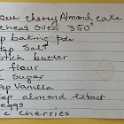 our cherry Almond cake
reheat oven 350°
sp baking pdr
sp Salt
stick butter
c flour
c sugar
sp vanilla
sp almond extract
eggs
c cherries